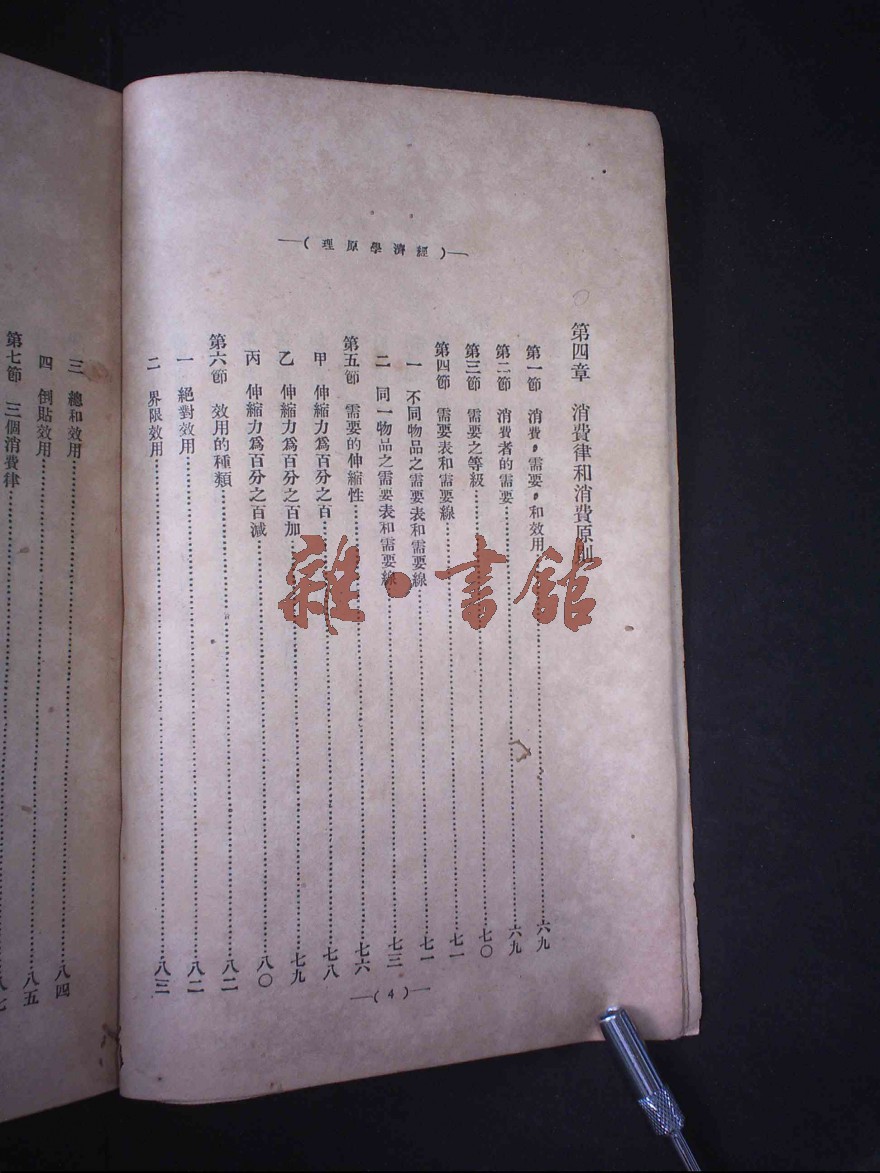 —(經濟學原理)—
第四章 消費律和消費原則
第一節 消費，需要，和效用……六九
第二節 消費者的需要……六九
第三節 需要之等級……七〇
第四節 需要表和需要線……七一
一 不同物品之需要表和需要線……七一
二 同一物品之需要表和需要線……七三
第五節 需要的伸縮性……七六
甲 伸縮力爲百分之百……七八
乙 伸縮力爲百分之百加……七九
丙 伸縮力爲百分之百減……八〇
第六節 效用的種類……八二
一 絕對效用……八二
二 界限效用……八三
—(4)—
三 總和效用……八四
四 倒貼效用……八五
第七節 三個消費律……八七
雜·書館